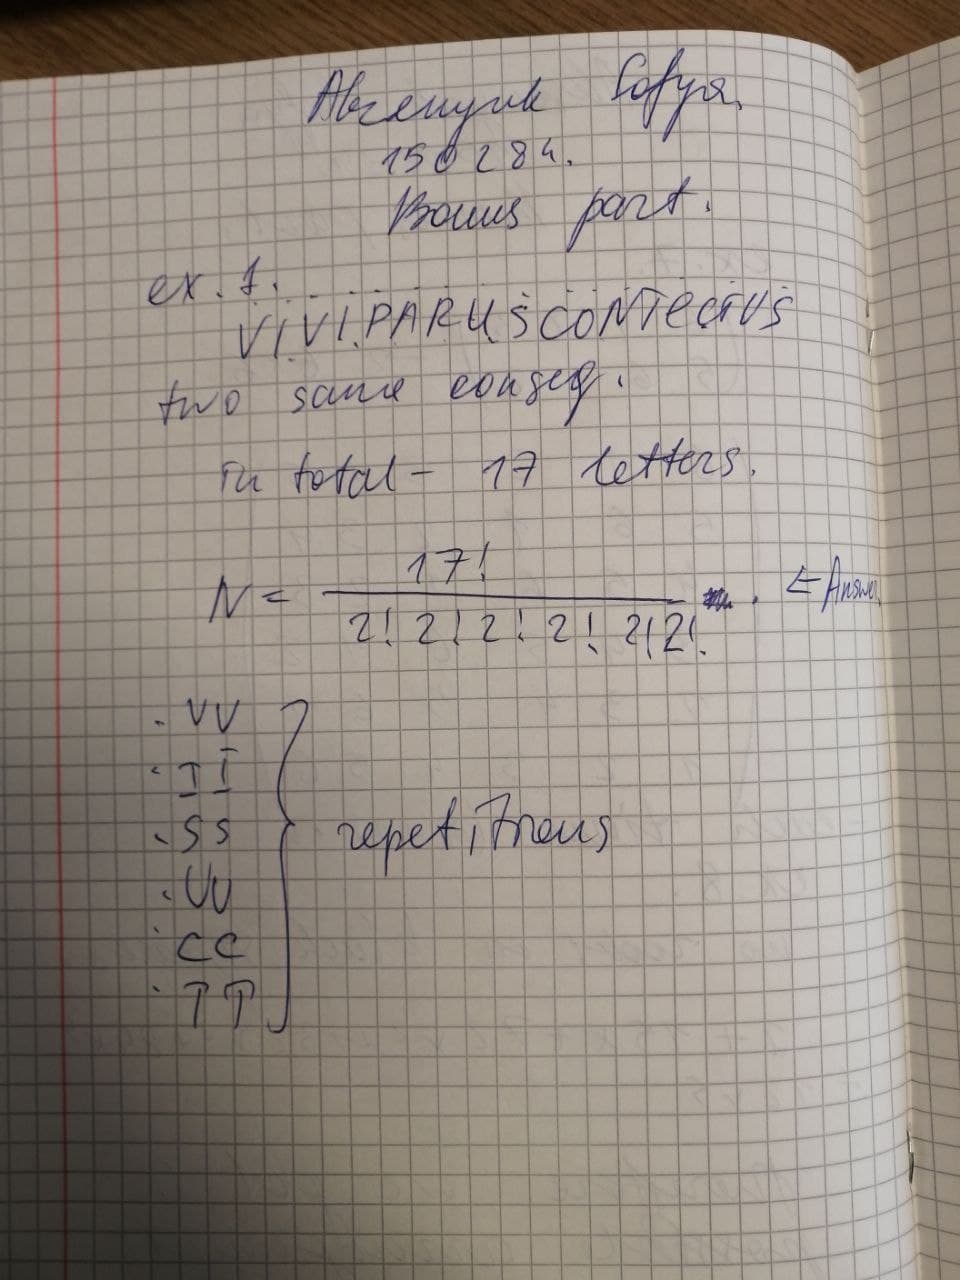 Sofya.
150284.
Bonus part.
ex. 1.
VIVIPARUSCONTECTUS
two same conseq.
In total - 17 letters.
N = 17! / 2! 2! 2! 2! 2! 2! . ← Answer.
. VV
. II
. SS
. UU
. CC
. TT
repetitions